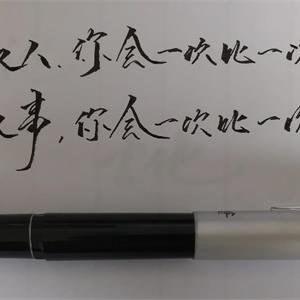 人,你会一次比一次
事,你会一次比一次